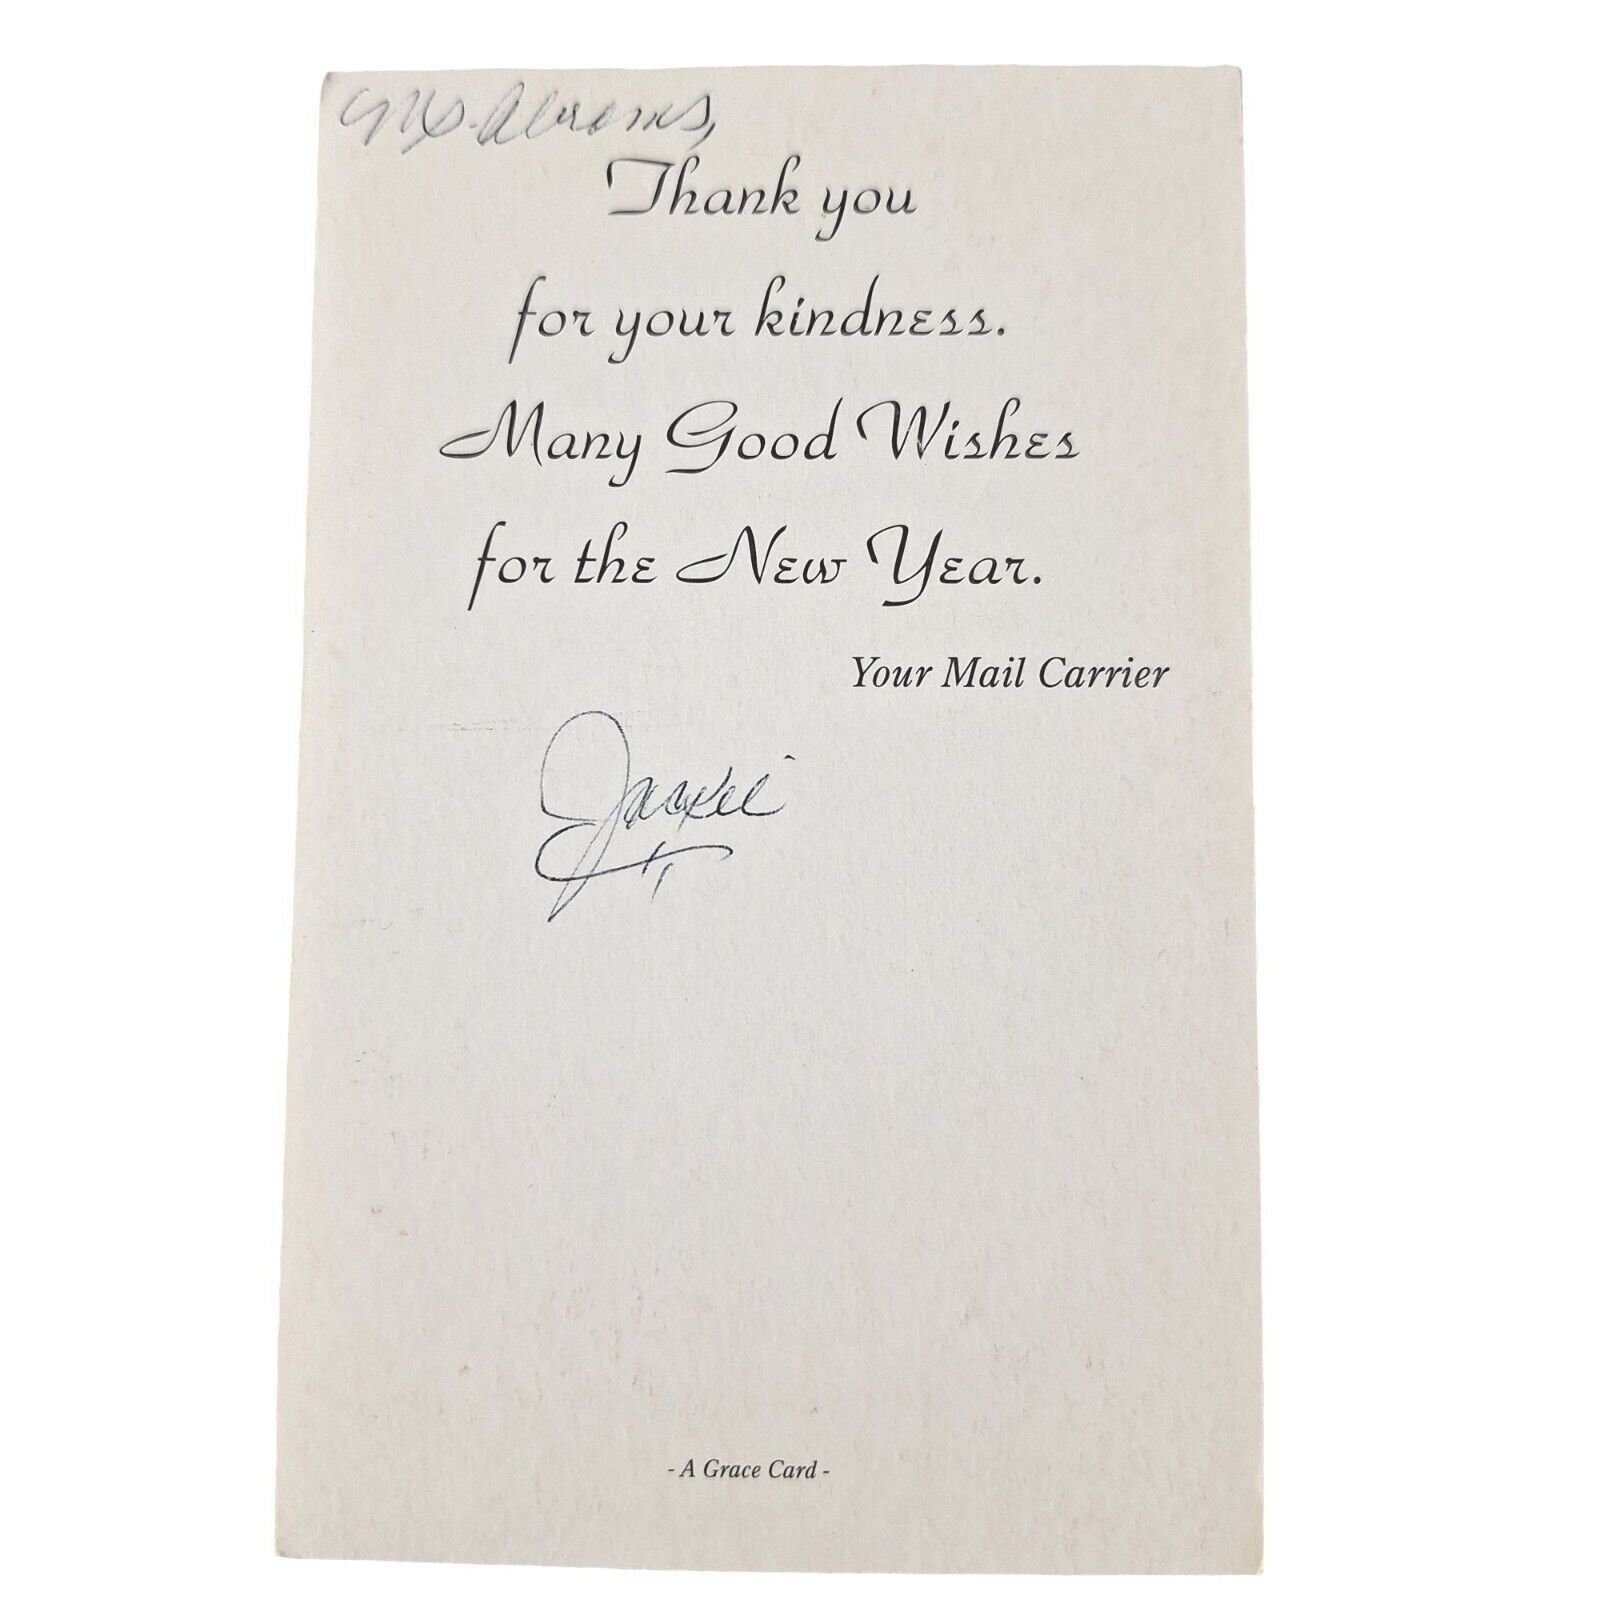 Ms. Abrams,
Thank you
for your kindness.
Many Good Wishes
for the New Year.
Your Mail Carrier
Jackie
- A Grace Card -